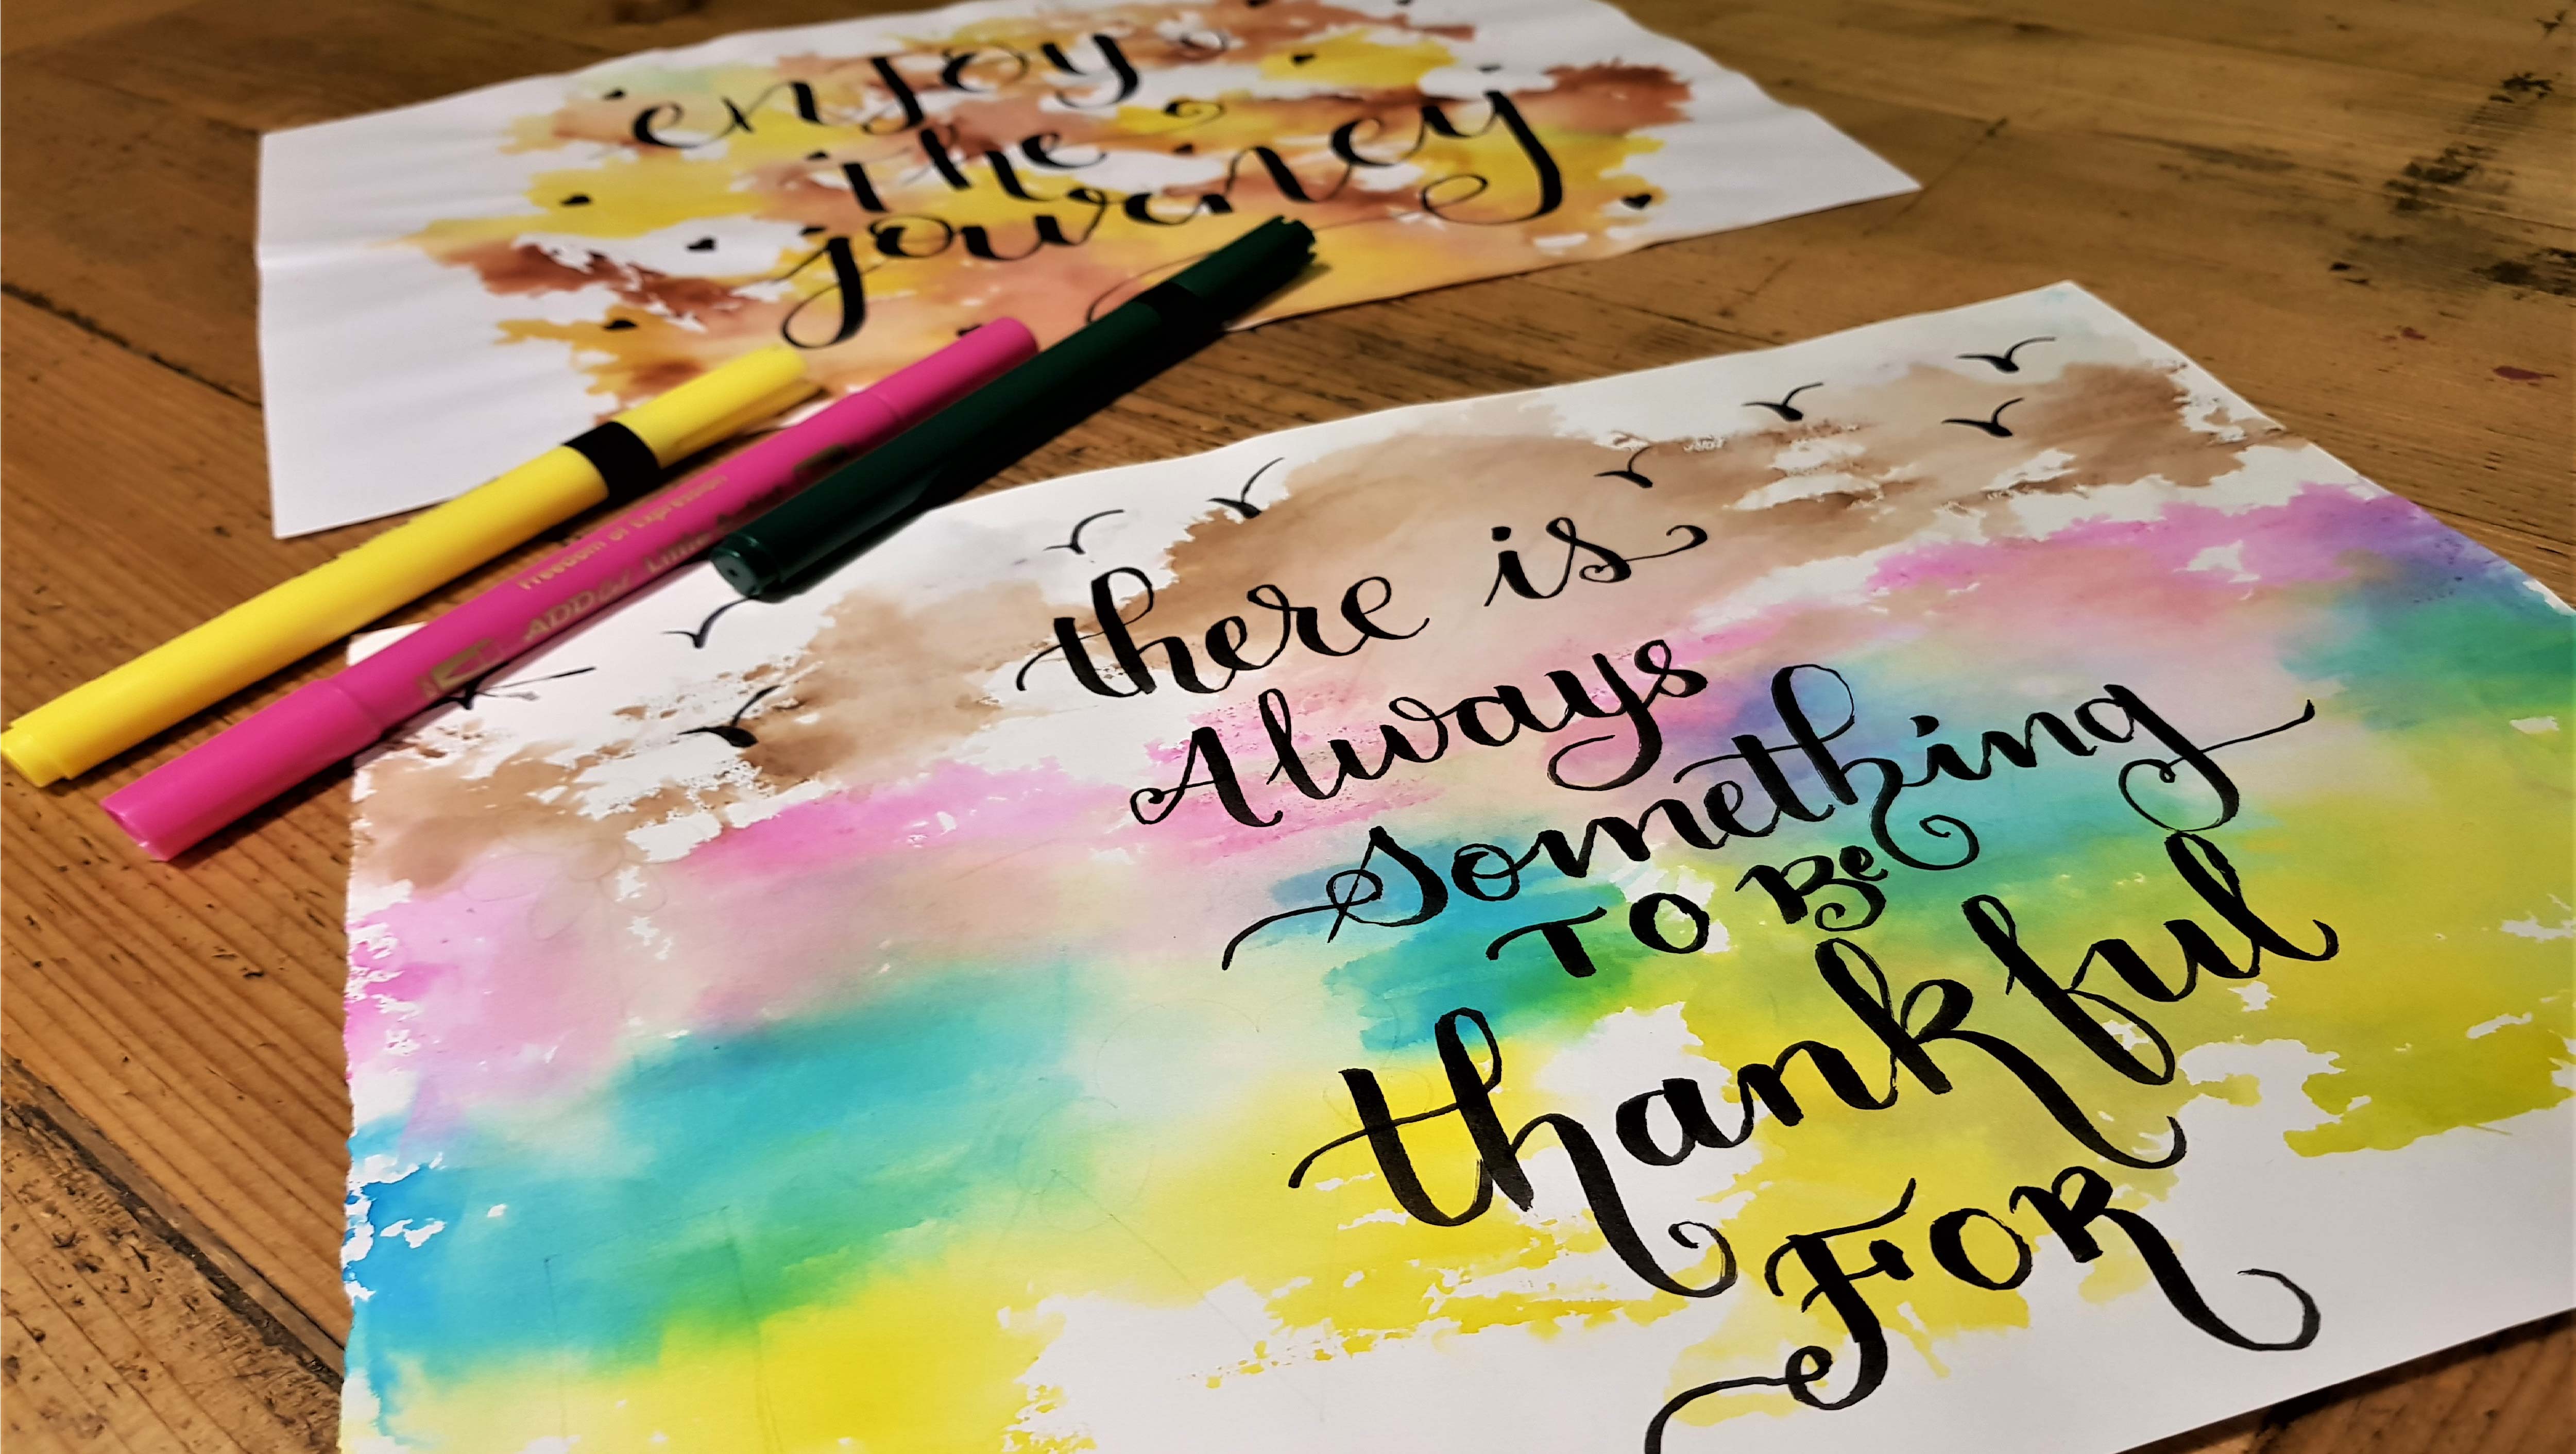 enjoy
the
journey
Freedom of Expression
ADD
there is
Always
something
TO Be
thankful
FOR